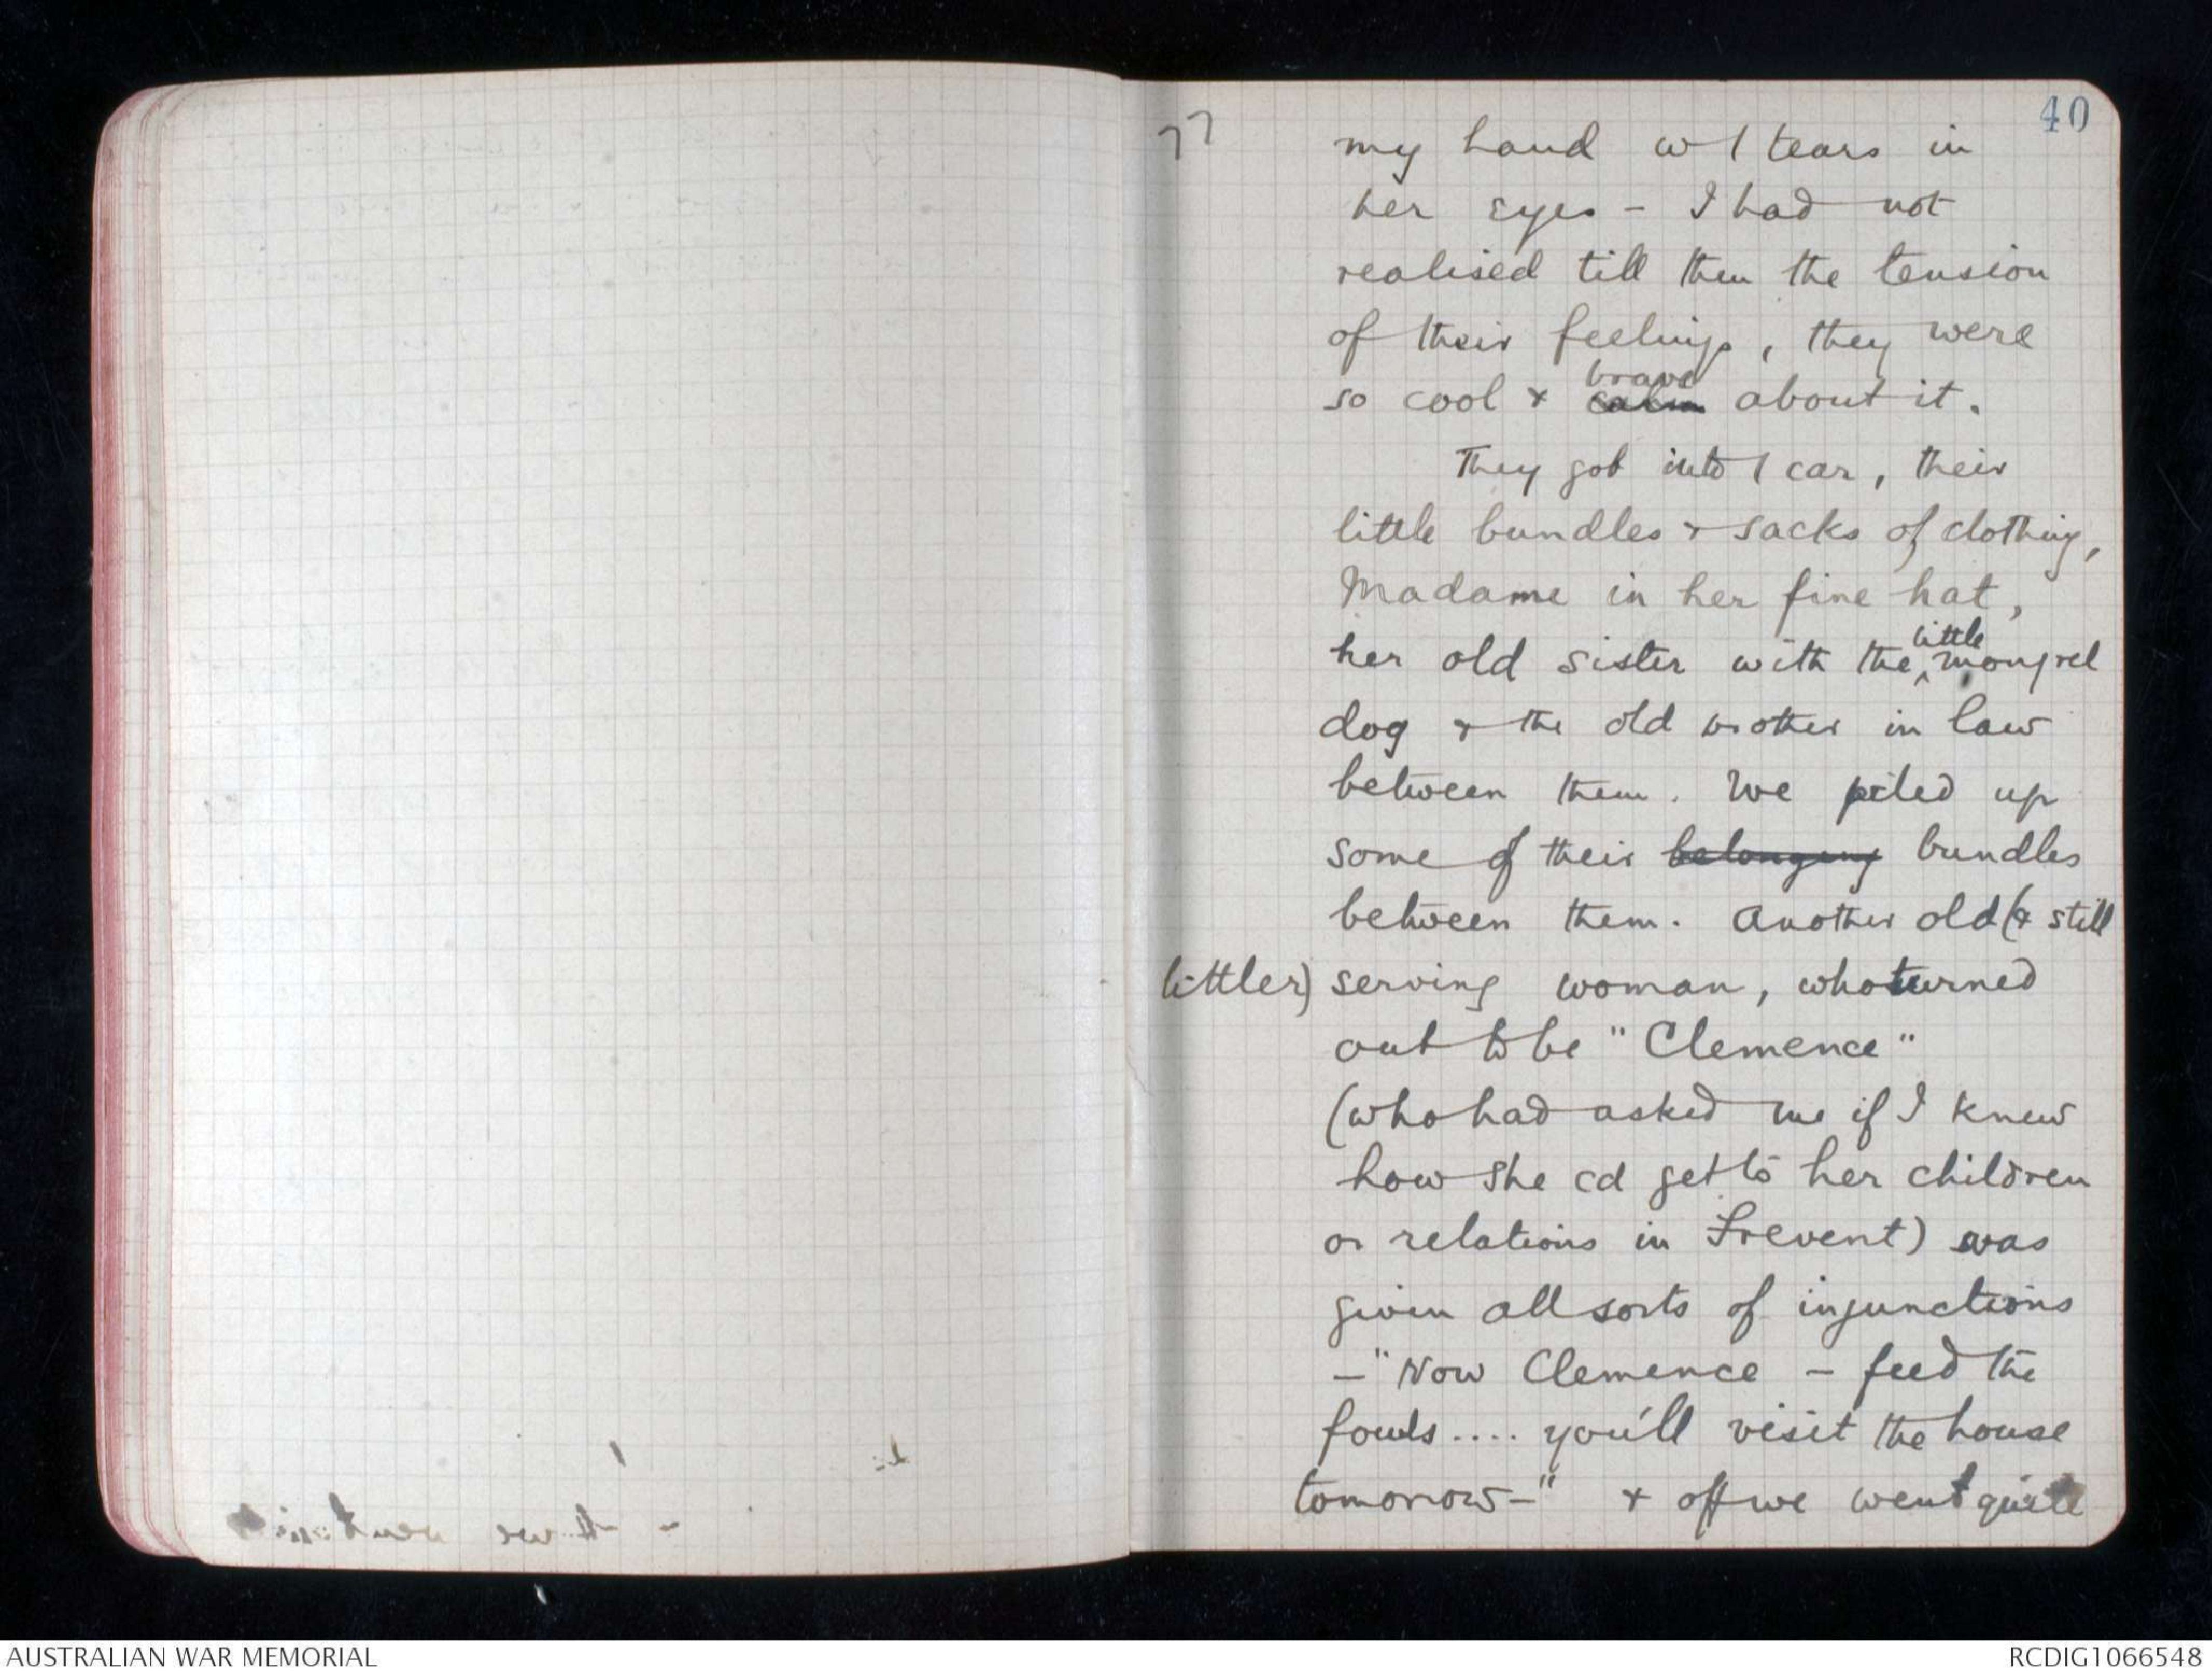 40
77
my hand w / tears in
her eyes - I had not
realised till then the tension
of their feelings, they were
so cool & calm brave about it.
They got into / car, their
little bundles & sacks of clothing,
Madame in her fine hat,
her old sister with the ^ little mongrel
dog & the old brother in law
between them. We piled up
some of their belongings bundles
between them. Another old (& still
littler) serving woman, who turned
out to be "Clemence"
(who had asked me if I knew
how she cd get to her children
or relations in Frevent) was
given all sorts of injunctions
- "Now Clemence - feed the
fowls.... you'll visit the house
tomorrow -" & off we went quite
AUSTRALIAN WAR MEMORIAL
RCDIG1066548